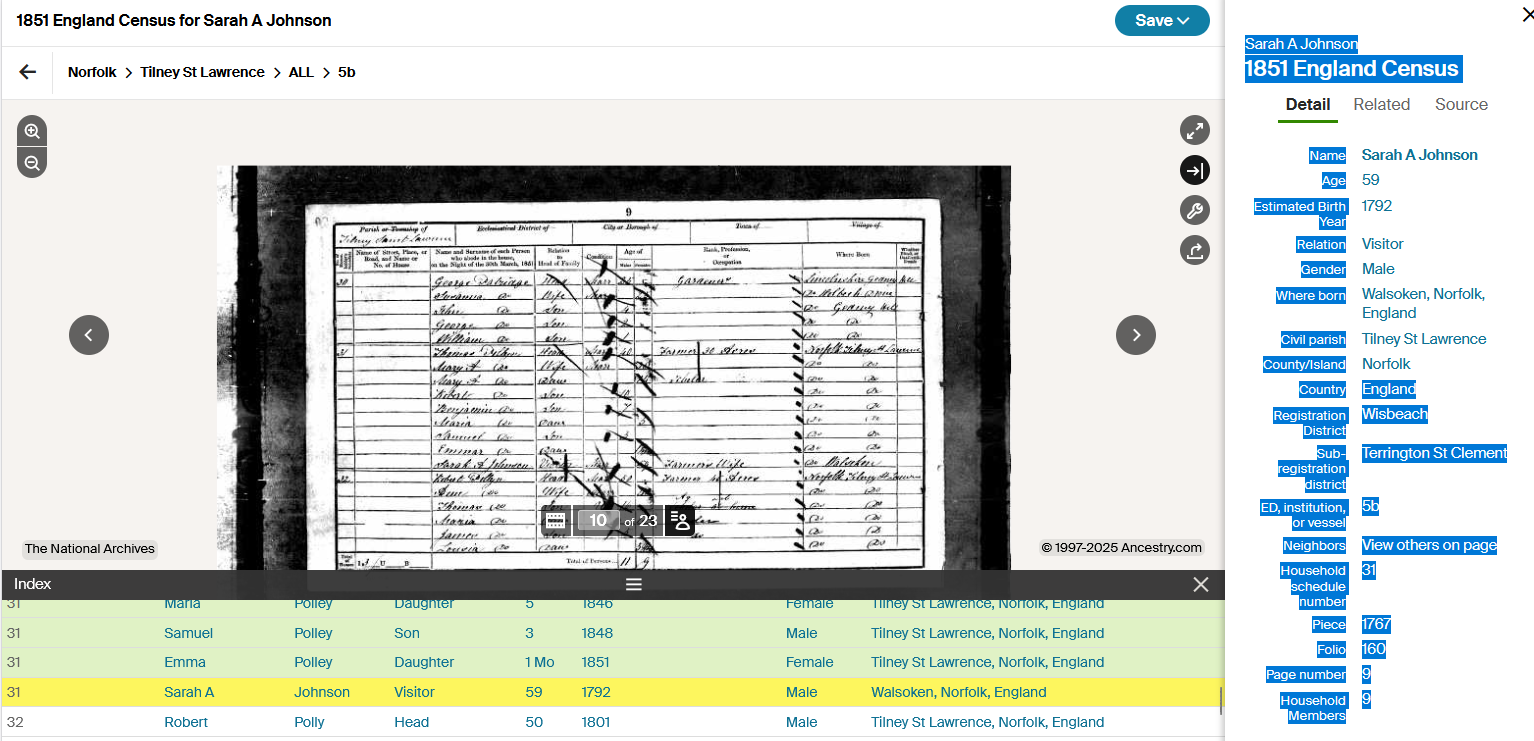 1851 England Census for Sarah A Johnson
Save
Norfolk > Tilney St Lawrence > ALL > 5b
9
Parish or Township of
Ecclesiastical District of
City or Borough of
Town of
Village of
Tilney Saint Lawrence
Name of Street, Place, or Road, and Name or No. of House
Name and Surname of each Person who abode in the house, on the Night of the 30th March, 1851
Relation to Head of Family
Condition
Age of
Males
Females
Rank, Profession, or Occupation
Where Born
30 George Head Marr Gardener
Susanna Do Wife
John Do Son
George Do Son
William Do Son
31 Thomas Head Farmer 30 Acres Norfolk Tilney St Lawrence
Mary A Do Wife Marr Do Do
Mary A Do Daur Do Do
Robert Do Son Do Do
Benjamin Do Son Do Do
Maria Do Daur Do Do
Samuel Do Son Do Do
Emmar Do Daur Do Do
Sarah A Johnson Marr Farmers Wife Do Walsoken
32 Robert Head Farmer Acres Norfolk Tilney St Lawrence
Ann Do Wife Do Do
Thomas Do Do Do
Maria Do Do Do
James Do Do Do
Louisa Do Daur Do Do
Total of Persons 11 9
10 of 23
The National Archives
© 1997-2025 Ancestry.com
Index
31 Maria Polley Daughter 5 1846 Female Tilney St Lawrence, Norfolk, England
31 Samuel Polley Son 3 1848 Male Tilney St Lawrence, Norfolk, England
31 Emma Polley Daughter 1 Mo 1851 Female Tilney St Lawrence, Norfolk, England
31 Sarah A Johnson Visitor 59 1792 Male Walsoken, Norfolk, England
32 Robert Polly Head 50 1801 Male Tilney St Lawrence, Norfolk, England
Sarah A Johnson
1851 England Census
Detail Related Source
Name Sarah A Johnson
Age 59
Estimated Birth Year 1792
Relation Visitor
Gender Male
Where born Walsoken, Norfolk, England
Civil parish Tilney St Lawrence
County/Island Norfolk
Country England
Registration District Wisbeach
Sub-registration district Terrington St Clement
ED, institution, or vessel 5b
Neighbors View others on page
Household schedule number 31
Piece 1767
Folio 160
Page number 9
Household Members 9